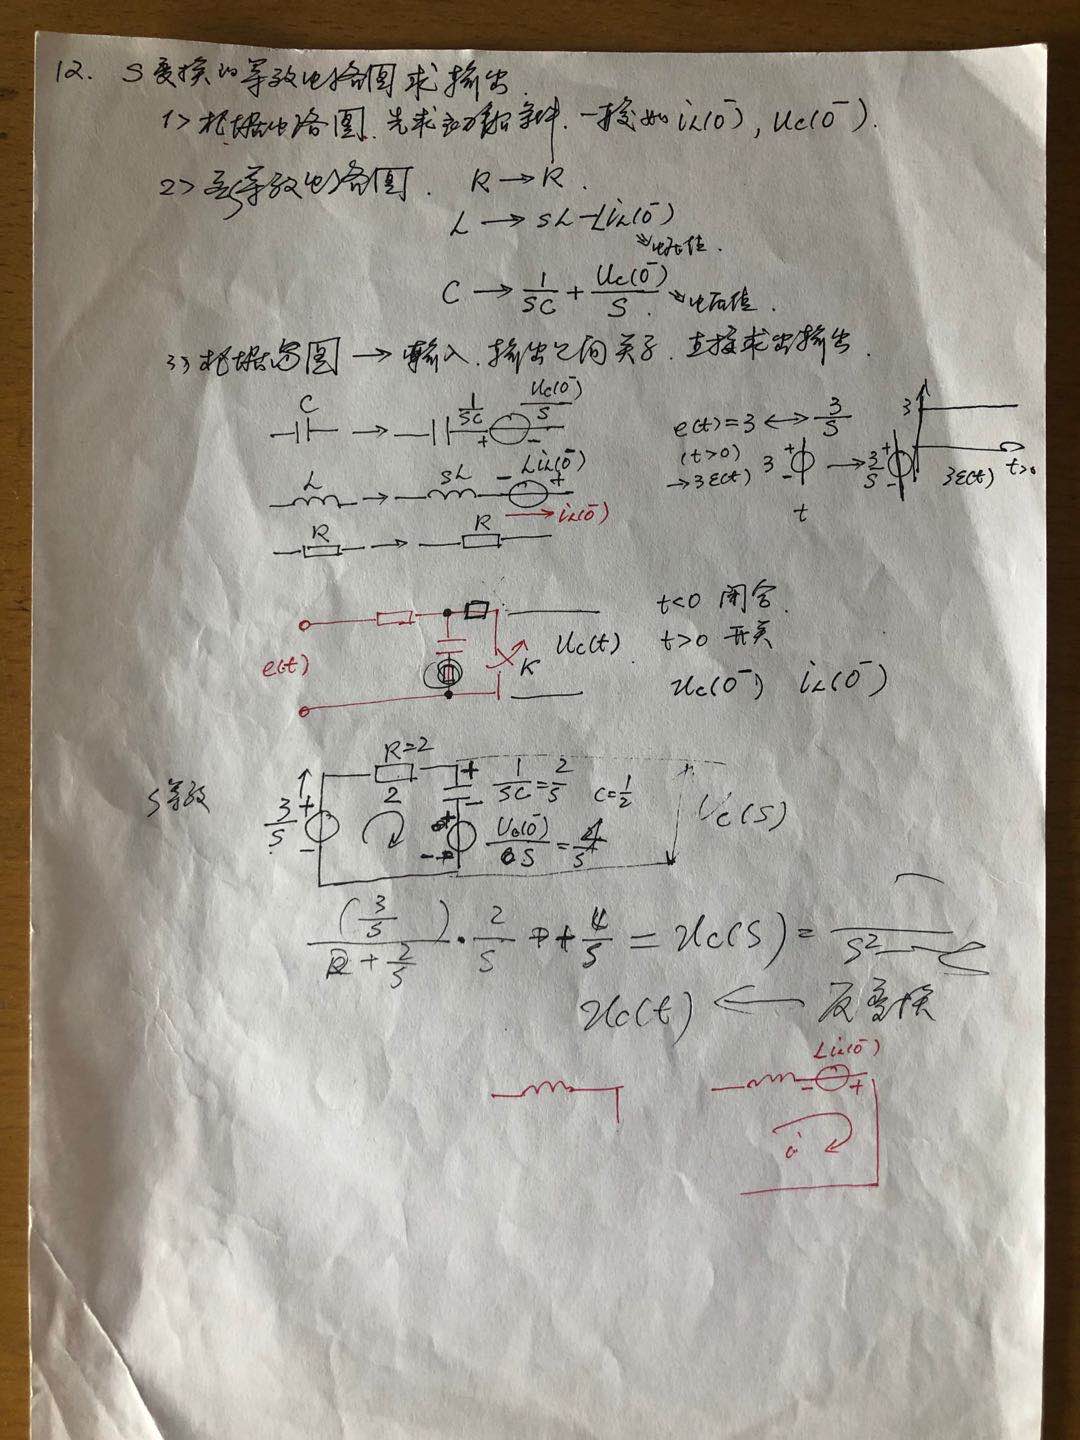 12. S变换的等效电路图求输出.
1> 根据电路图.先求初始条件.一般如 iL(0⁻), Uc(0⁻).
2> 画等效电路图. R→R.
L→SL-LiL(0⁻)
电压值.
C→1/SC+Uc(0⁻)/S 电压值.
3> 根据图→输入.输出之间关系.直接求出输出.
C → 1/SC + Uc(0⁻)/S -
L → SL - LiL(0⁻) +
→ iL(0⁻)
R → R
e(t)=3 ↔ 3/S
(t>0)
→3ε(t) 3 + - → 3/S + -
t
3
3ε(t) t>0
e(t) K Uc(t)
t<0 闭合.
t>0 开关
Uc(0⁻) iL(0⁻)
S等效
3/S + -
R=2
2
+ - 1/SC=2/S C=1/2
Uc(0⁻)/S=4/S
Uc(S)
(3/S)/(2+2/S)·2/S+4/S=Uc(S)=/S²
Uc(t) ← 反变换
LiL(0⁻)
- +
i